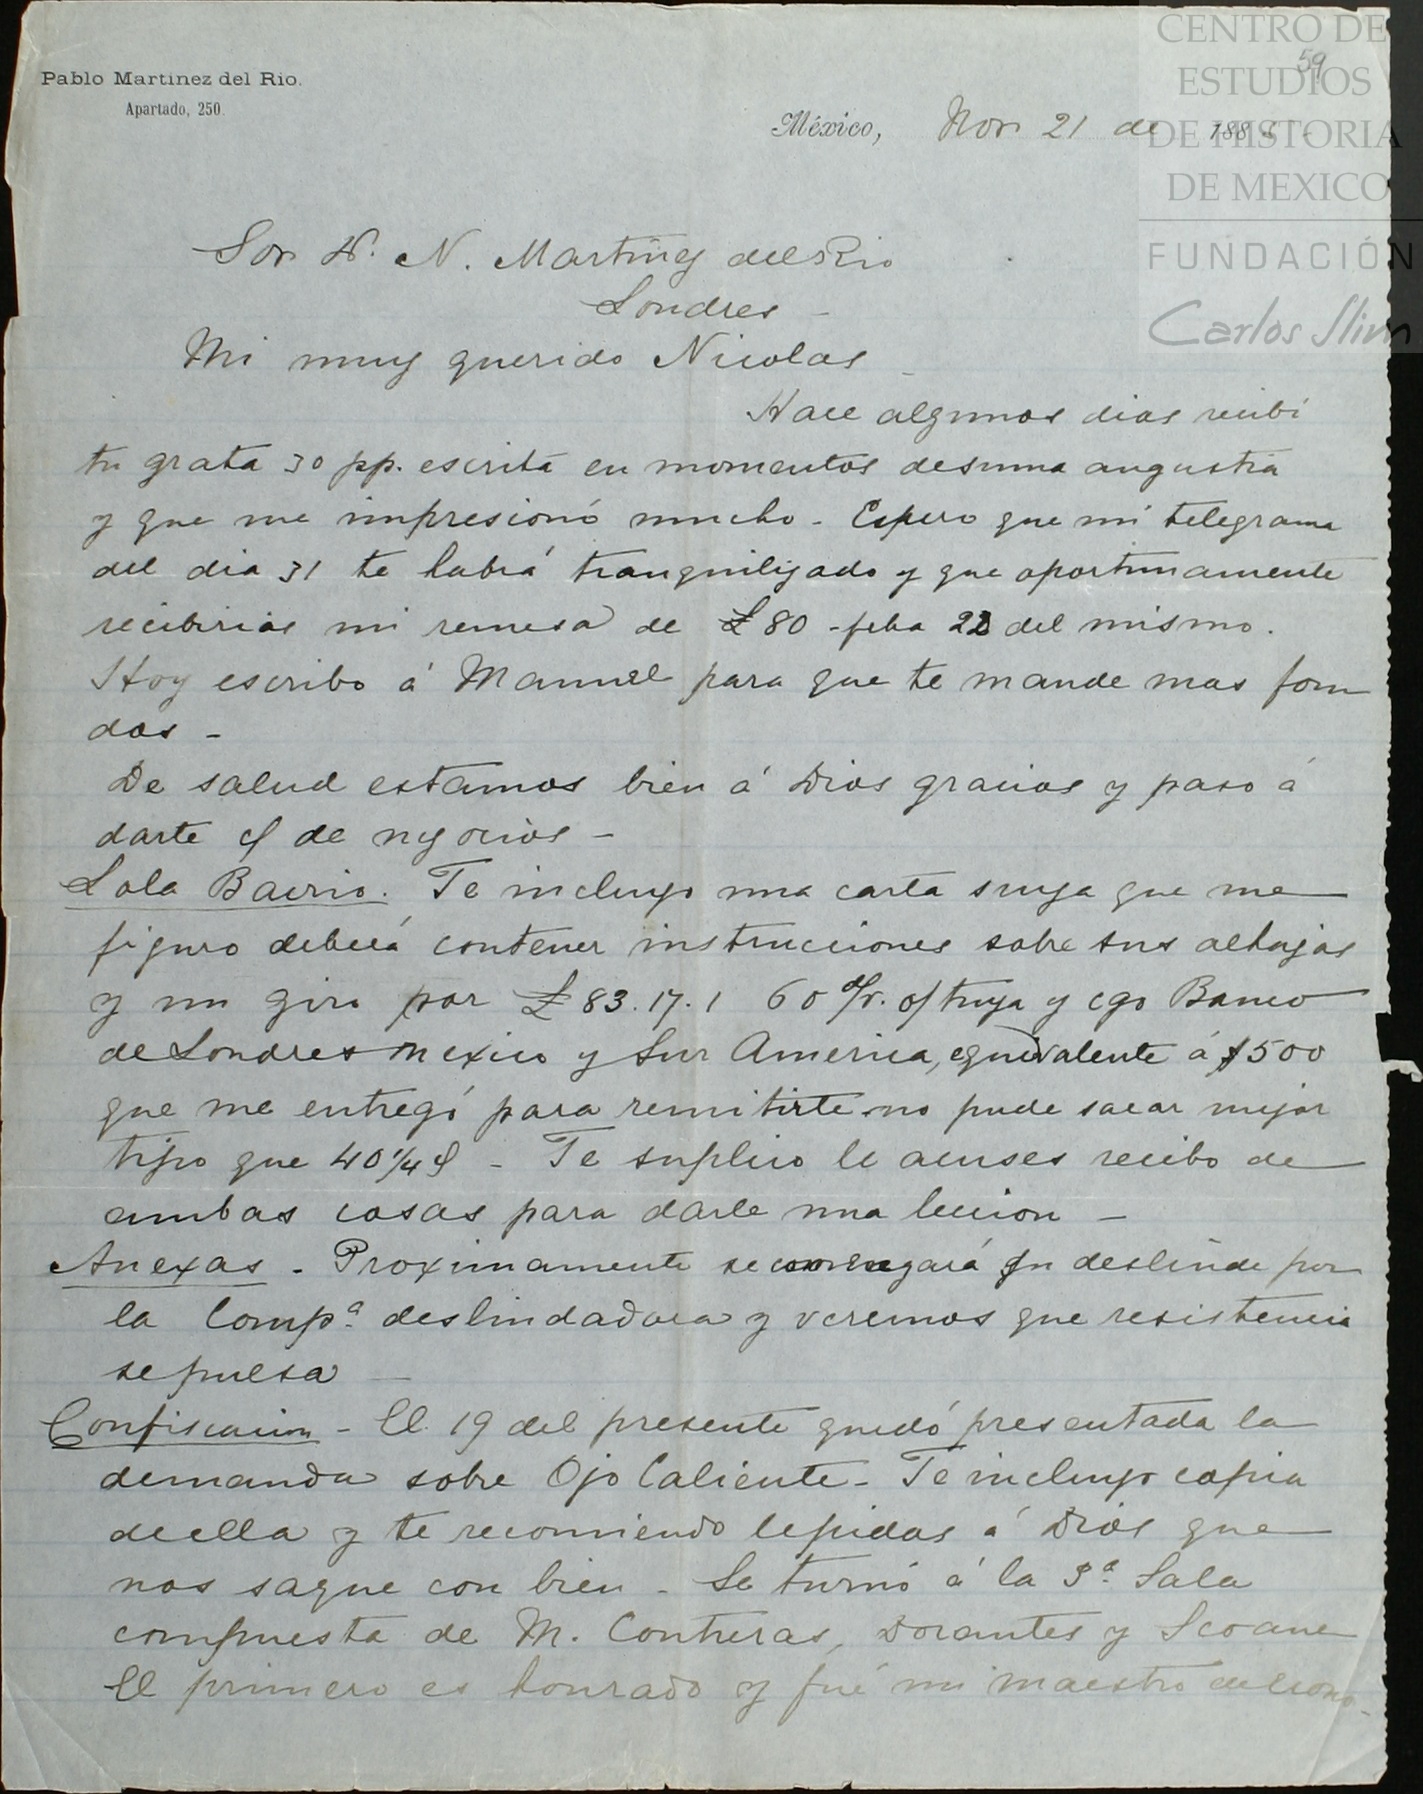 CENTRO DE
ESTUDIOS
DE HISTORIA
DE MEXICO
FUNDACIÓN
Carlos Slim
59
Pablo Martinez del Rio.
Apartado, 250.
México, Nov 21 de 188
Sor D. N. Martinez del Rio
Londres -
Mi muy querido Nicolas
Hace algunos dias recibí
tu grata 30 pp. escrita en momentos de suma angustia
y que me impresionó mucho - Espero que mi telegrama
del dia 31 te habrá tranquilizado y que oportunamente
recibirias mi remesa de £80 - fcha 22 del mismo.
Hoy escribo á Manuel para que te mande mas fon
dos -
De salud estamos bien á Dios gracias y paso á
darte de negocios -
Lola Barrio. Te incluyo una carta suya que me
figuro deberá contener instrucciones sobre sus alhajas
y un giro por £83.17.1 60 d/v. o/ tuya y cgo Banco
de Londres Mexico y Sur America, equivalente á $500
que me entregó para remitirte - no pude sacar mejor
tipo que 40 1/4 - Te suplico le acuses recibo de
ambas cosas para darle una leccion -
Anexas - Proximamente se comenzará su deslinde por
la Compª. deslindadora y veremos que resistencia
se pulsa -
Confiscacion - El 19 del presente quedó presentada la
demanda sobre Ojo Caliente - Te incluyo copia
de ella y te recomiendo le pidas á Dios que
nos saque con bien - Se turnó á la 3ª. Sala
compuesta de M. Contreras, Dorantes y Seoane
El primero es honrado y fué mi maestro